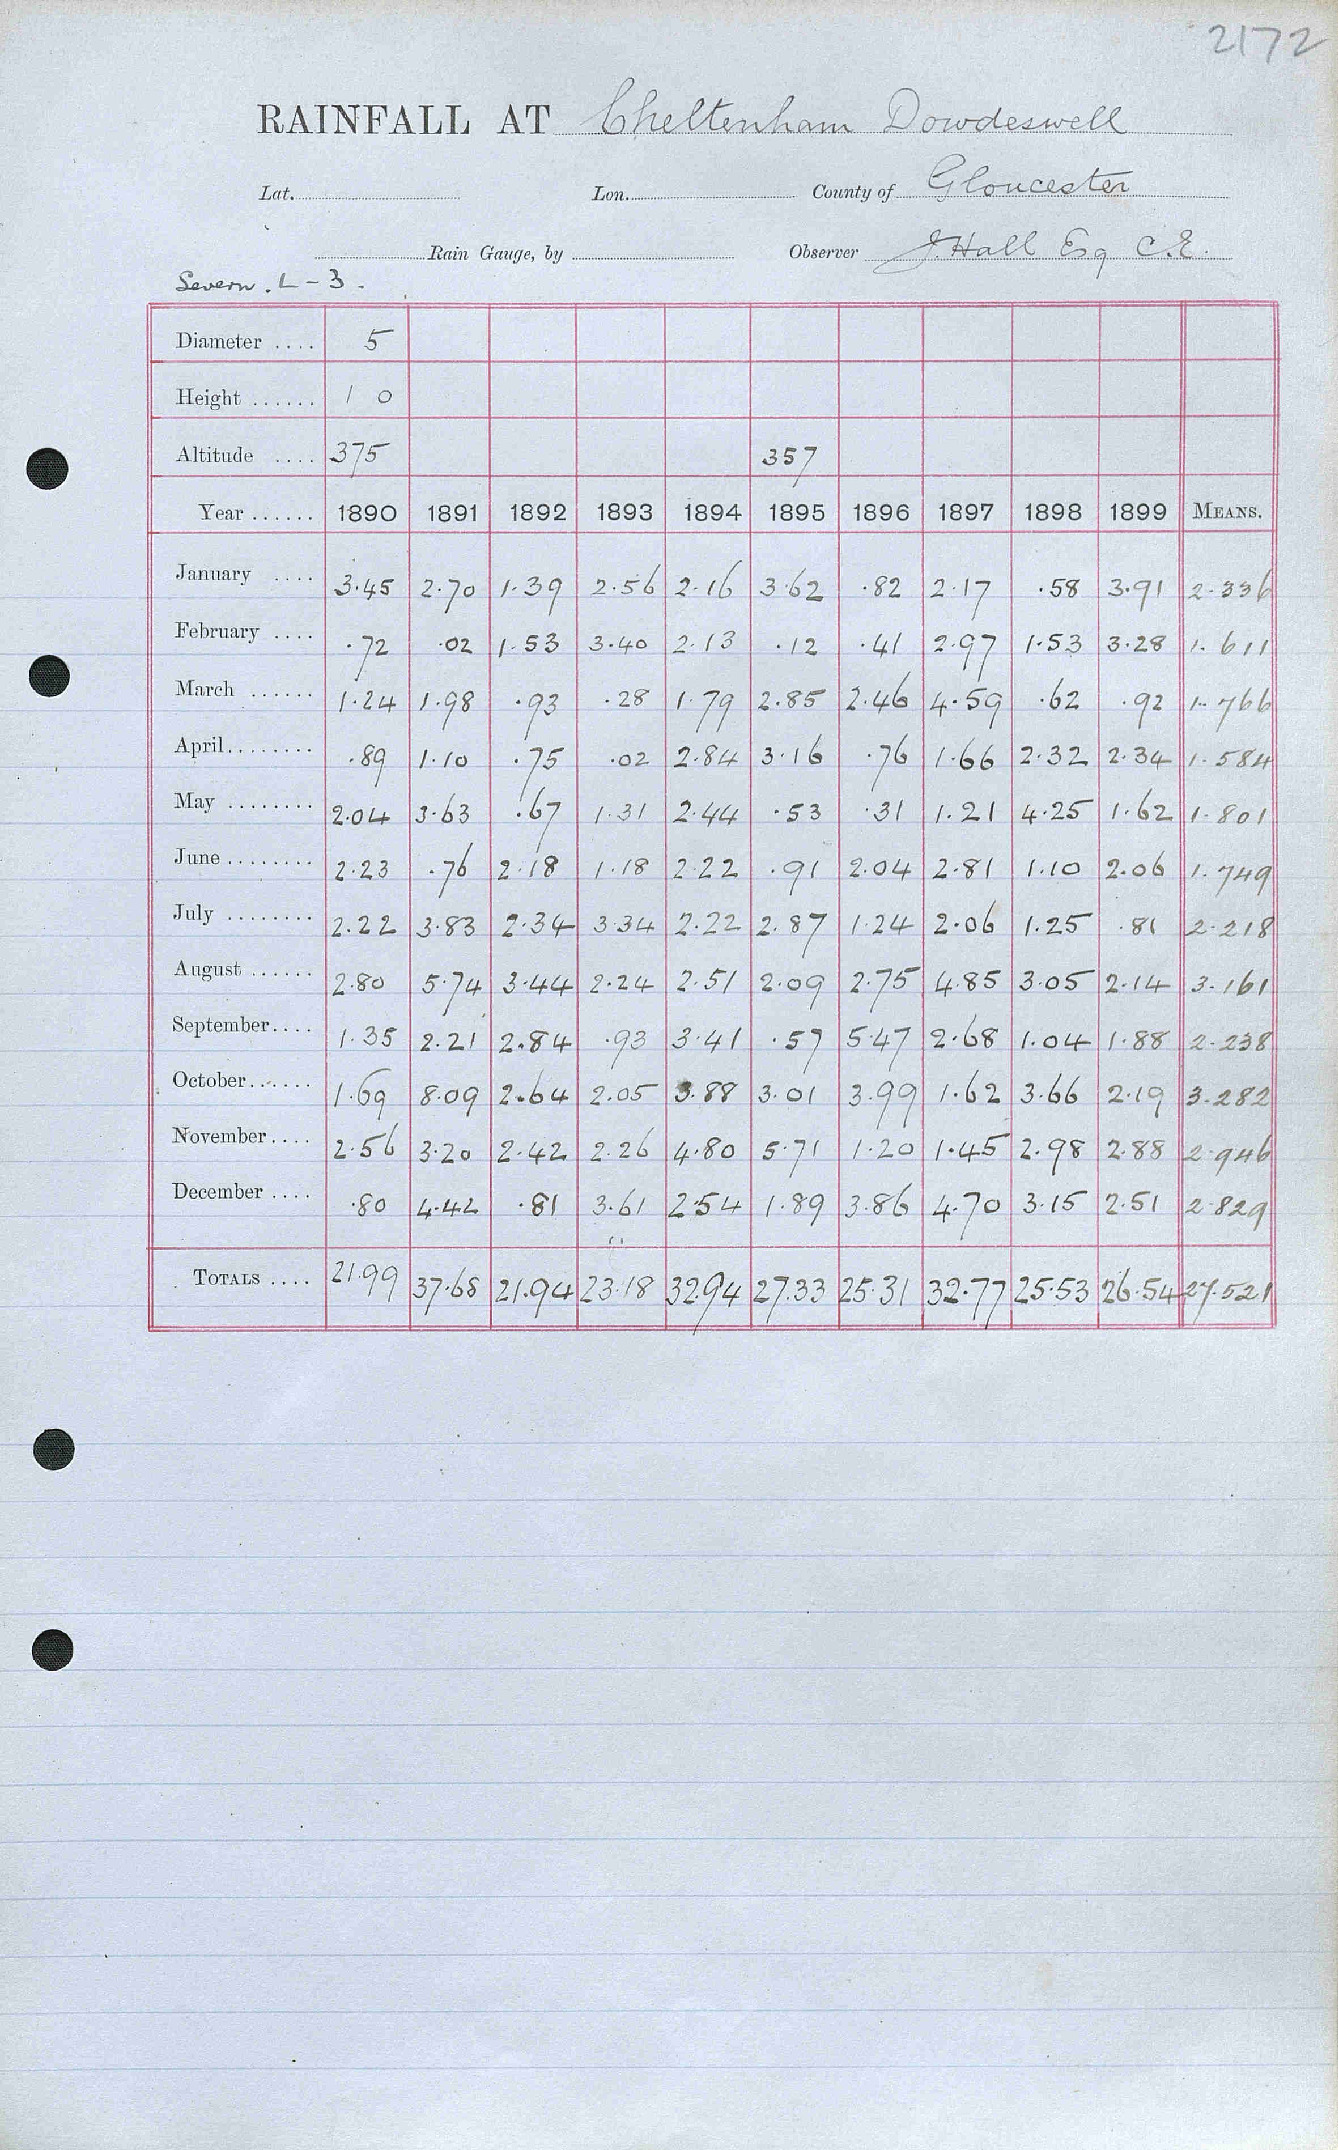 2172
RAINFALL AT Cheltenham Dowdeswell
Lat. Lon. County of Gloucester
Rain Gauge, by Observer J. Hall Esq C.E.
Severn. L - 3.
Diameter .... 5
Height ...... 1 0
Altitude .... 375 357
Year ...... 1890 1891 1892 1893 1894 1895 1896 1897 1898 1899 MEANS.
January .... 3.45 2.70 1.39 2.56 2.16 3.62 .82 2.17 .58 3.91 2.336
February .... .72 .02 1.53 3.40 2.13 .12 .41 2.97 1.53 3.28 1.611
March ...... 1.24 1.98 .93 .28 1.79 2.85 2.46 4.59 .62 .92 1.766
April........ .89 1.10 .75 .02 2.84 3.16 .76 1.66 2.32 2.34 1.584
May ........ 2.04 3.63 .67 1.31 2.44 .53 .31 1.21 4.25 1.62 1.801
June ........ 2.23 .76 2.18 1.18 2.22 .91 2.04 2.81 1.10 2.06 1.749
July ........ 2.22 3.83 2.34 3.34 2.22 2.87 1.24 2.06 1.25 .81 2.218
August ...... 2.80 5.74 3.44 2.24 2.51 2.09 2.75 4.85 3.05 2.14 3.161
September.... 1.35 2.21 2.84 .93 3.41 .57 5.47 2.68 1.04 1.88 2.238
October...... 1.69 8.09 2.64 2.05 3.88 3.01 3.99 1.62 3.66 2.19 3.282
November.... 2.56 3.20 2.42 2.26 4.80 5.71 1.20 1.45 2.98 2.88 2.946
December .... .80 4.42 .81 3.61 2.54 1.89 3.86 4.70 3.15 2.51 2.829
TOTALS .... 21.99 37.68 21.94 23.18 32.94 27.33 25.31 32.77 25.53 26.54 27.521